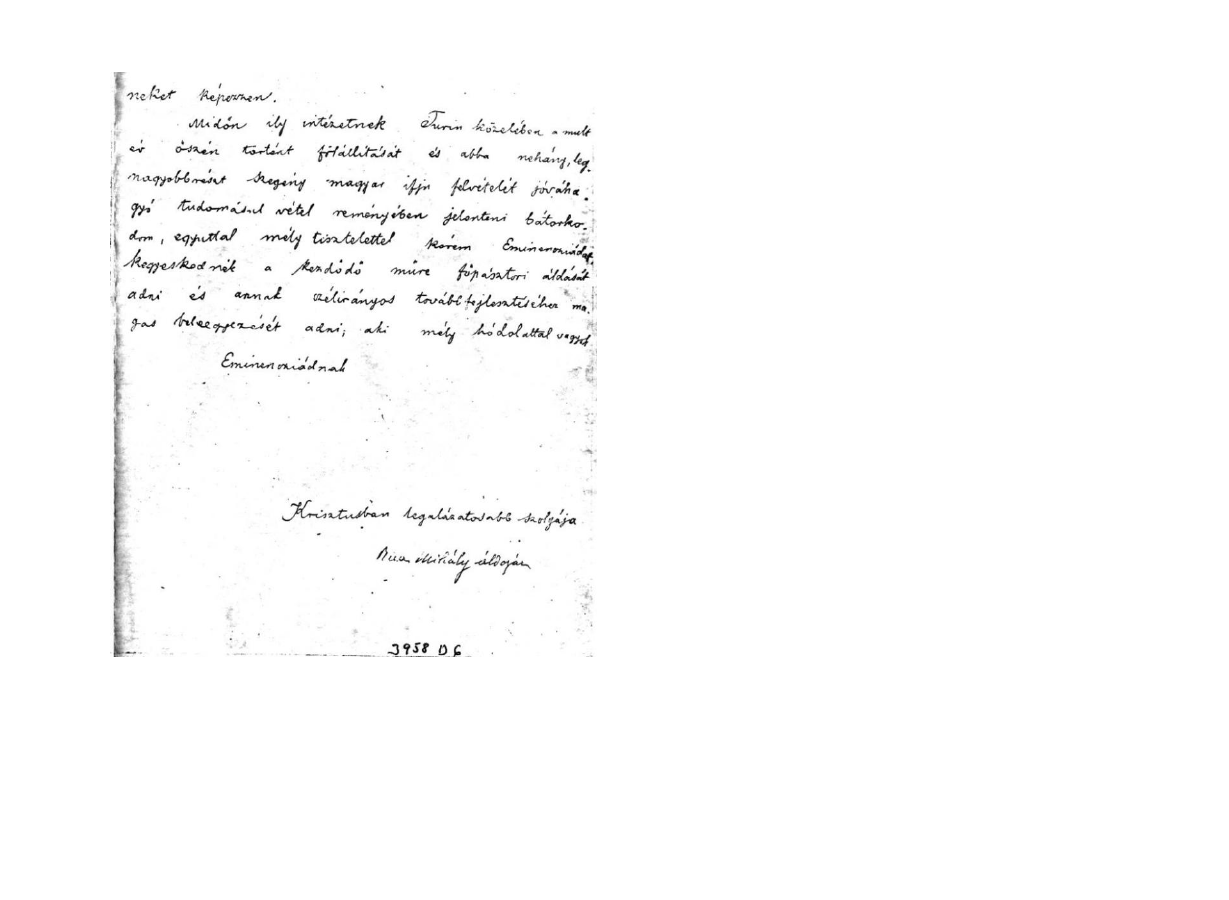 neket képezzen.
Midőn ily intézetnek Turin közelében a mult
év őszén történt fölállitását és abba nehány, leg-
nagyobbrészt szegény magyar ifju felvételét jóváha-
gyó tudomásul vétel reményében jelenteni bátorko-
dom, egyuttal mély tisztelettel kérem Eminencziádat,
kegyeskednék a kezdődő műre főpásztori áldását
adni és annak czélirányos továbbfejlesztéséhez ma-
gas beleegyezését adni; aki mély hódolattal vagyok
Eminencziádnak
Krisztusban legalázatosabb szolgája
Mihály áldozár
3958 D 6